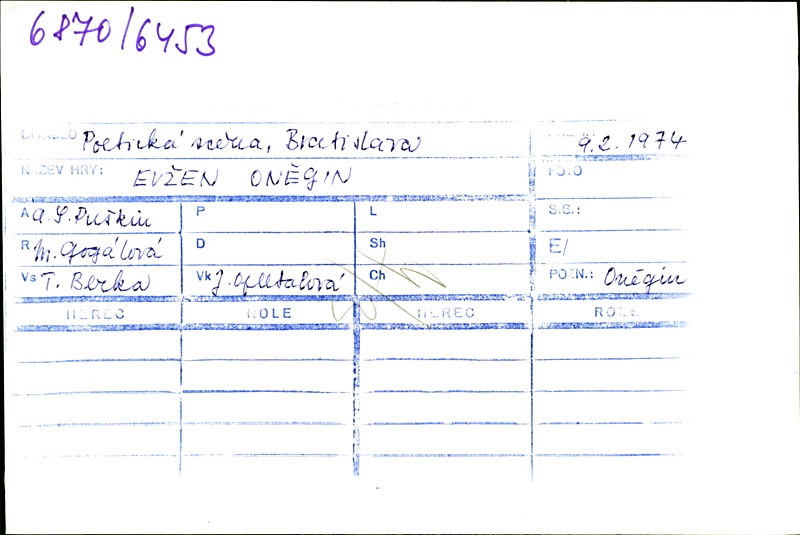 6870/6453
DIVADLO Poetická scéna, Bratislava 9.2.1974
NÁZEV HRY: EVŽEN ONĚGIN FOTO
A A. S. Puškin P L S.G.:
R M. Gogálová D Sh E/
Vs T. Berka Vk Ch POZN.: Oněgin
HEREC ROLE HEREC ROLE